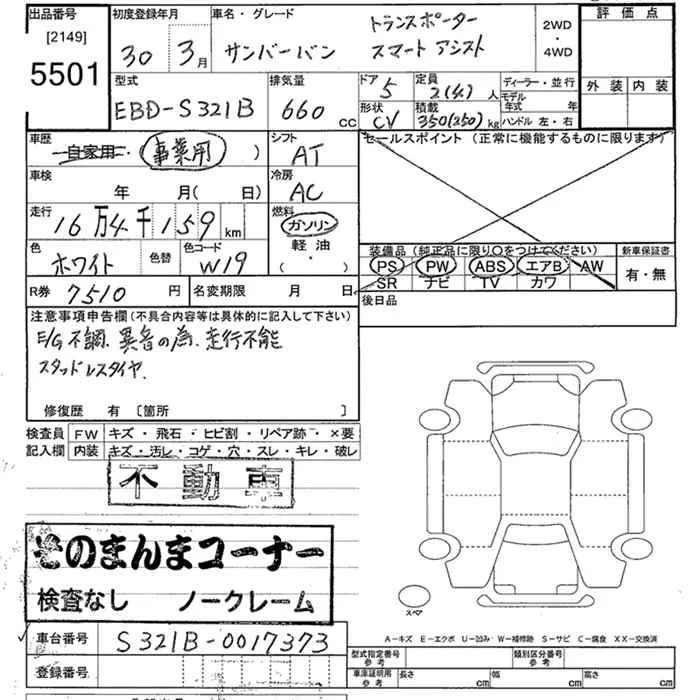 出品番号 初度登録年月 車名・グレード トランスポーター 2WD 評価点
[2149] 30 3月 サンバーバン スマートアシスト ・ 4WD
5501 型式 排気量 ドア 定員 ディーラー・並行 外装 内装
EBD-S321B 660 cc 5 2(4)人 モデル年式 年
形状 CV 積載 350(250)kg ハンドル 左・右
車歴 自家用・(事業用) シフト AT セールスポイント (正常に機能するものに限ります)
車検 年 月(日) 冷房 AC
走行 16万4千159km 燃料 ガソリン 軽油 (・)
色 ホワイト 色替 色コード W19
装備品 (純正品に限り○をつけてください) 新車保証書
PS PW ABS エアB AW 有・無
SR ナビ TV カワ
R券 7510円 名変期限 月 日 後日品
注意事項申告欄(不具合内容等は具体的に記入して下さい)
E/G不調.異音の為.走行不能
スタッドレスタイヤ.
修復歴 有 〔箇所 〕
検査員 FW キズ・飛石・ヒビ割・リペア跡・×要
記入欄 内装 キズ・汚レ・コゲ・穴・スレ・キレ・破レ
不動車
そのまんまコーナー
検査なし ノークレーム
スペア
A-キズ E-エクボ U-凹み W-補修跡 S-サビ C-腐食 XX-交換済
車台番号 S321B-0017373 型式指定番号 参考 類別区分番号 参考
登録番号 車庫証明用 参考 長さ cm 幅 cm 高さ cm